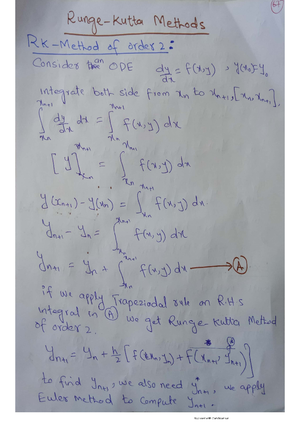 Runge-Kutta Methods
RK-Method of order 2:
Consider the an ODE dy/dx = f(x,y) , y(x₀)=y₀
integrate both side from xn to xn+1, [xn, xn+1].
∫_{xn}^{xn+1} dy/dx dx = ∫_{xn}^{xn+1} f(x,y) dx
[y]_{xn}^{xn+1} = ∫_{xn}^{xn+1} f(x,y) dx
y(xn+1) - y(xn) = ∫_{xn}^{xn+1} f(x,y) dx
yn+1 - yn = ∫_{xn}^{xn+1} f(x,y) dx
yn+1 = yn + ∫_{xn}^{xn+1} f(x,y) dx → (A)
if we apply Trapezoidal rule on R.H.S
integral in (A) we get Runge-Kutta Method
of order 2.
yn+1 = yn + h/2 [f(xn,yn) + f(xn+1, yn+1)]
to find yn+1, we also need yn+1, we apply
Euler method to compute yn+1.